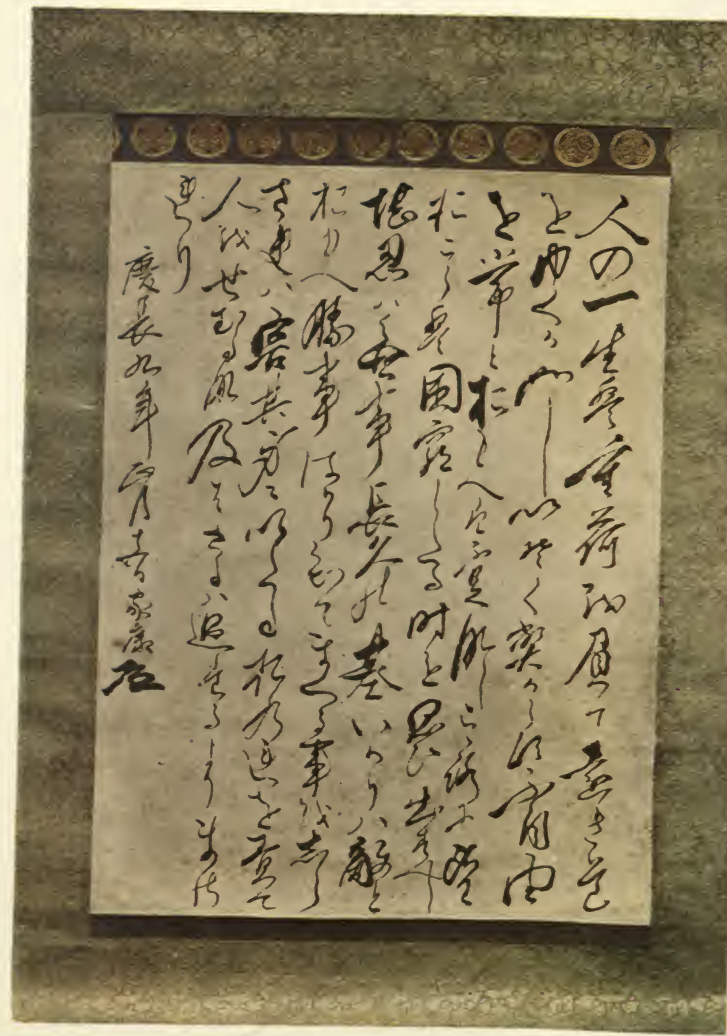 人の一生は重荷を負て遠き道
をゆくか如しいそくへからす不自由
を常とおもへは不足なしこゝろに望
おこらは困窮したる時を思ひ出すへし
堪忍は無事長久の基いかりハ敵と
おもへ勝事はかり知てまくる事を志ら
されハ害其身にいたるおのれを責て
人をせむるな及はさるハ過たるよりまさ
れり
慶長九年 家康